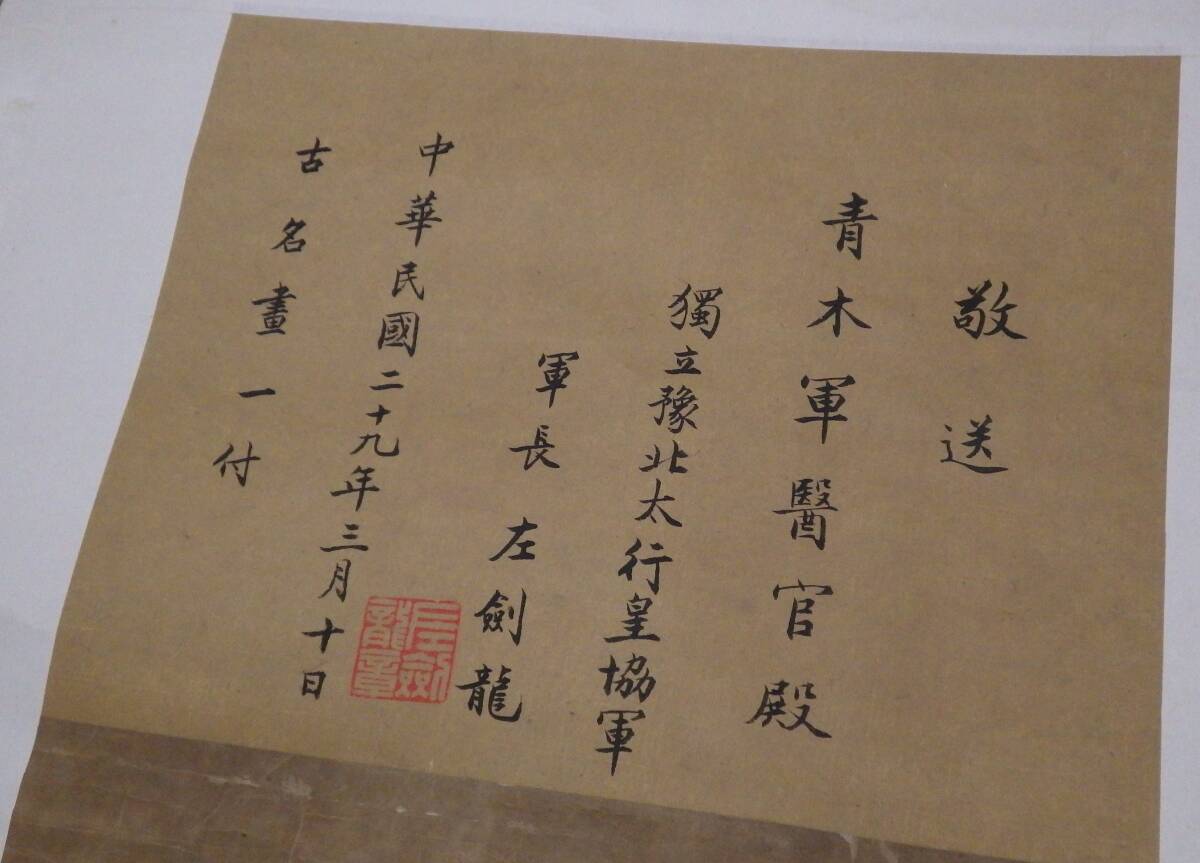 敬送
青木軍醫官殿
獨立豫北太行皇協軍
軍長 左劍龍
左劍龍章
中華民國二十九年三月十日
古名畫一付